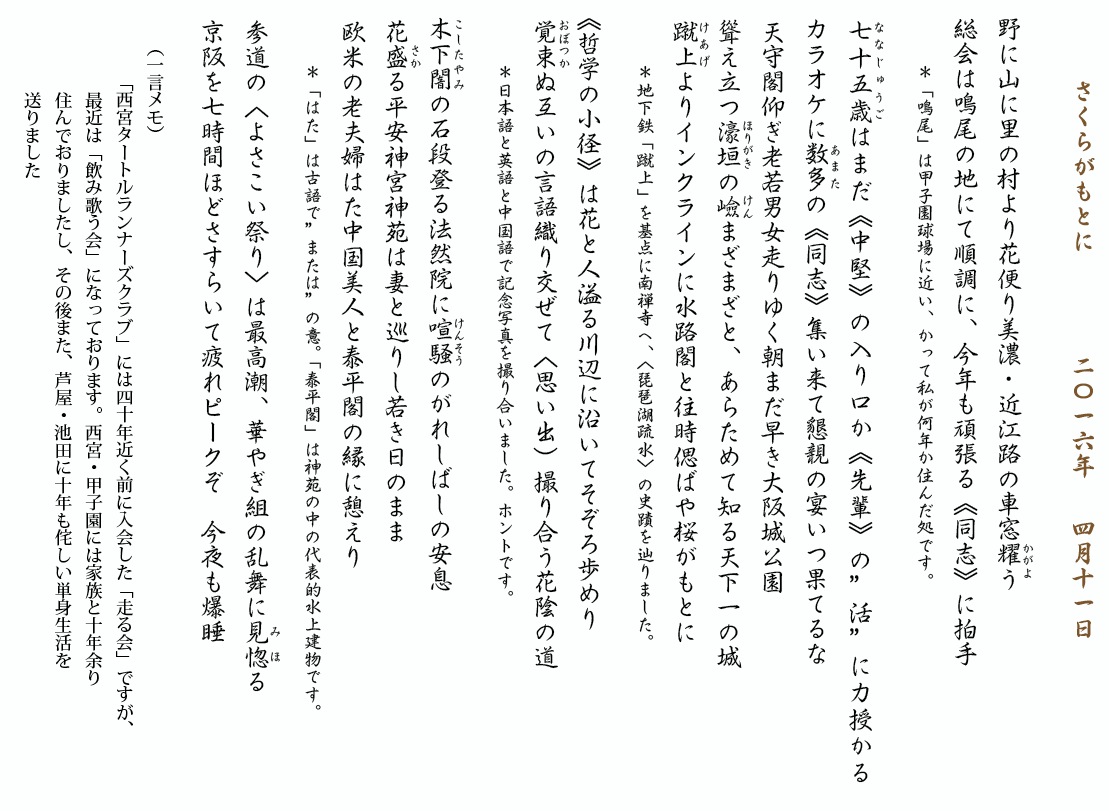 さくらがもとに　　二〇一六年　四月十一日
野に山に里の村より花便り美濃・近江路の車窓耀う
かがよ
総会は鳴尾の地にて順調に、今年も頑張る《同志》に拍手
＊「鳴尾」は甲子園球場に近い、かって私が何年か住んだ処です。
七十五歳はまだ《中堅》の入り口か《先輩》の”活”に力授かる
ななじゅうご
カラオケに数多の《同志》集い来て懇親の宴いつ果てるな
あまた
天守閣仰ぎ老若男女走りゆく朝まだ早き大阪城公園
聳え立つ濠垣の嶮まざまざと、あらためて知る天下一の城
ほりがき　けん
蹴上よりインクラインに水路閣と往時偲ばや桜がもとに
けあげ
＊地下鉄「蹴上」を基点に南禅寺へ、〈琵琶湖疏水〉の史蹟を辿りました。
《哲学の小径》は花と人溢る川辺に沿いてそぞろ歩めり
覚束ぬ互いの言語織り交ぜて〈思い出〉撮り合う花陰の道
おぼつか
＊日本語と英語と中国語で記念写真を撮り合いました。ホントです。
木下闇の石段登る法然院に喧騒のがれしばしの安息
こしたやみ　けんそう
花盛る平安神宮神苑は妻と巡りし若き日のまま
さか
欧米の老夫婦はた中国美人と泰平閣の縁に憩えり
＊「はた」は古語で”または”の意。「泰平閣」は神苑の中の代表的水上建物です。
参道の〈よさこい祭り〉は最高潮、華やぎ組の乱舞に見惚る
みほ
京阪を七時間ほどさすらいて疲れピークぞ　今夜も爆睡
（一言メモ）
「西宮タートルランナーズクラブ」には四十年近く前に入会した「走る会」ですが、
最近は「飲み歌う会」になっております。西宮・甲子園には家族と十年余り
住んでおりましたし、その後また、芦屋・池田に十年も侘しい単身生活を
送りました